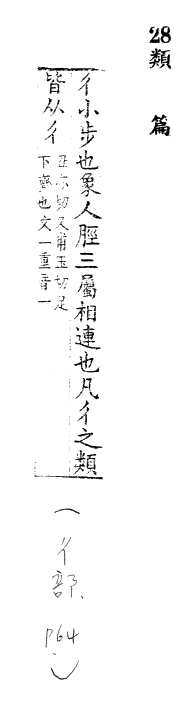 28類 篇
彳小步也象人脛三屬相連也凡彳之類
皆从彳
丑亦切又甫玉切足
下齊也文一重音一
(彳部、P64)